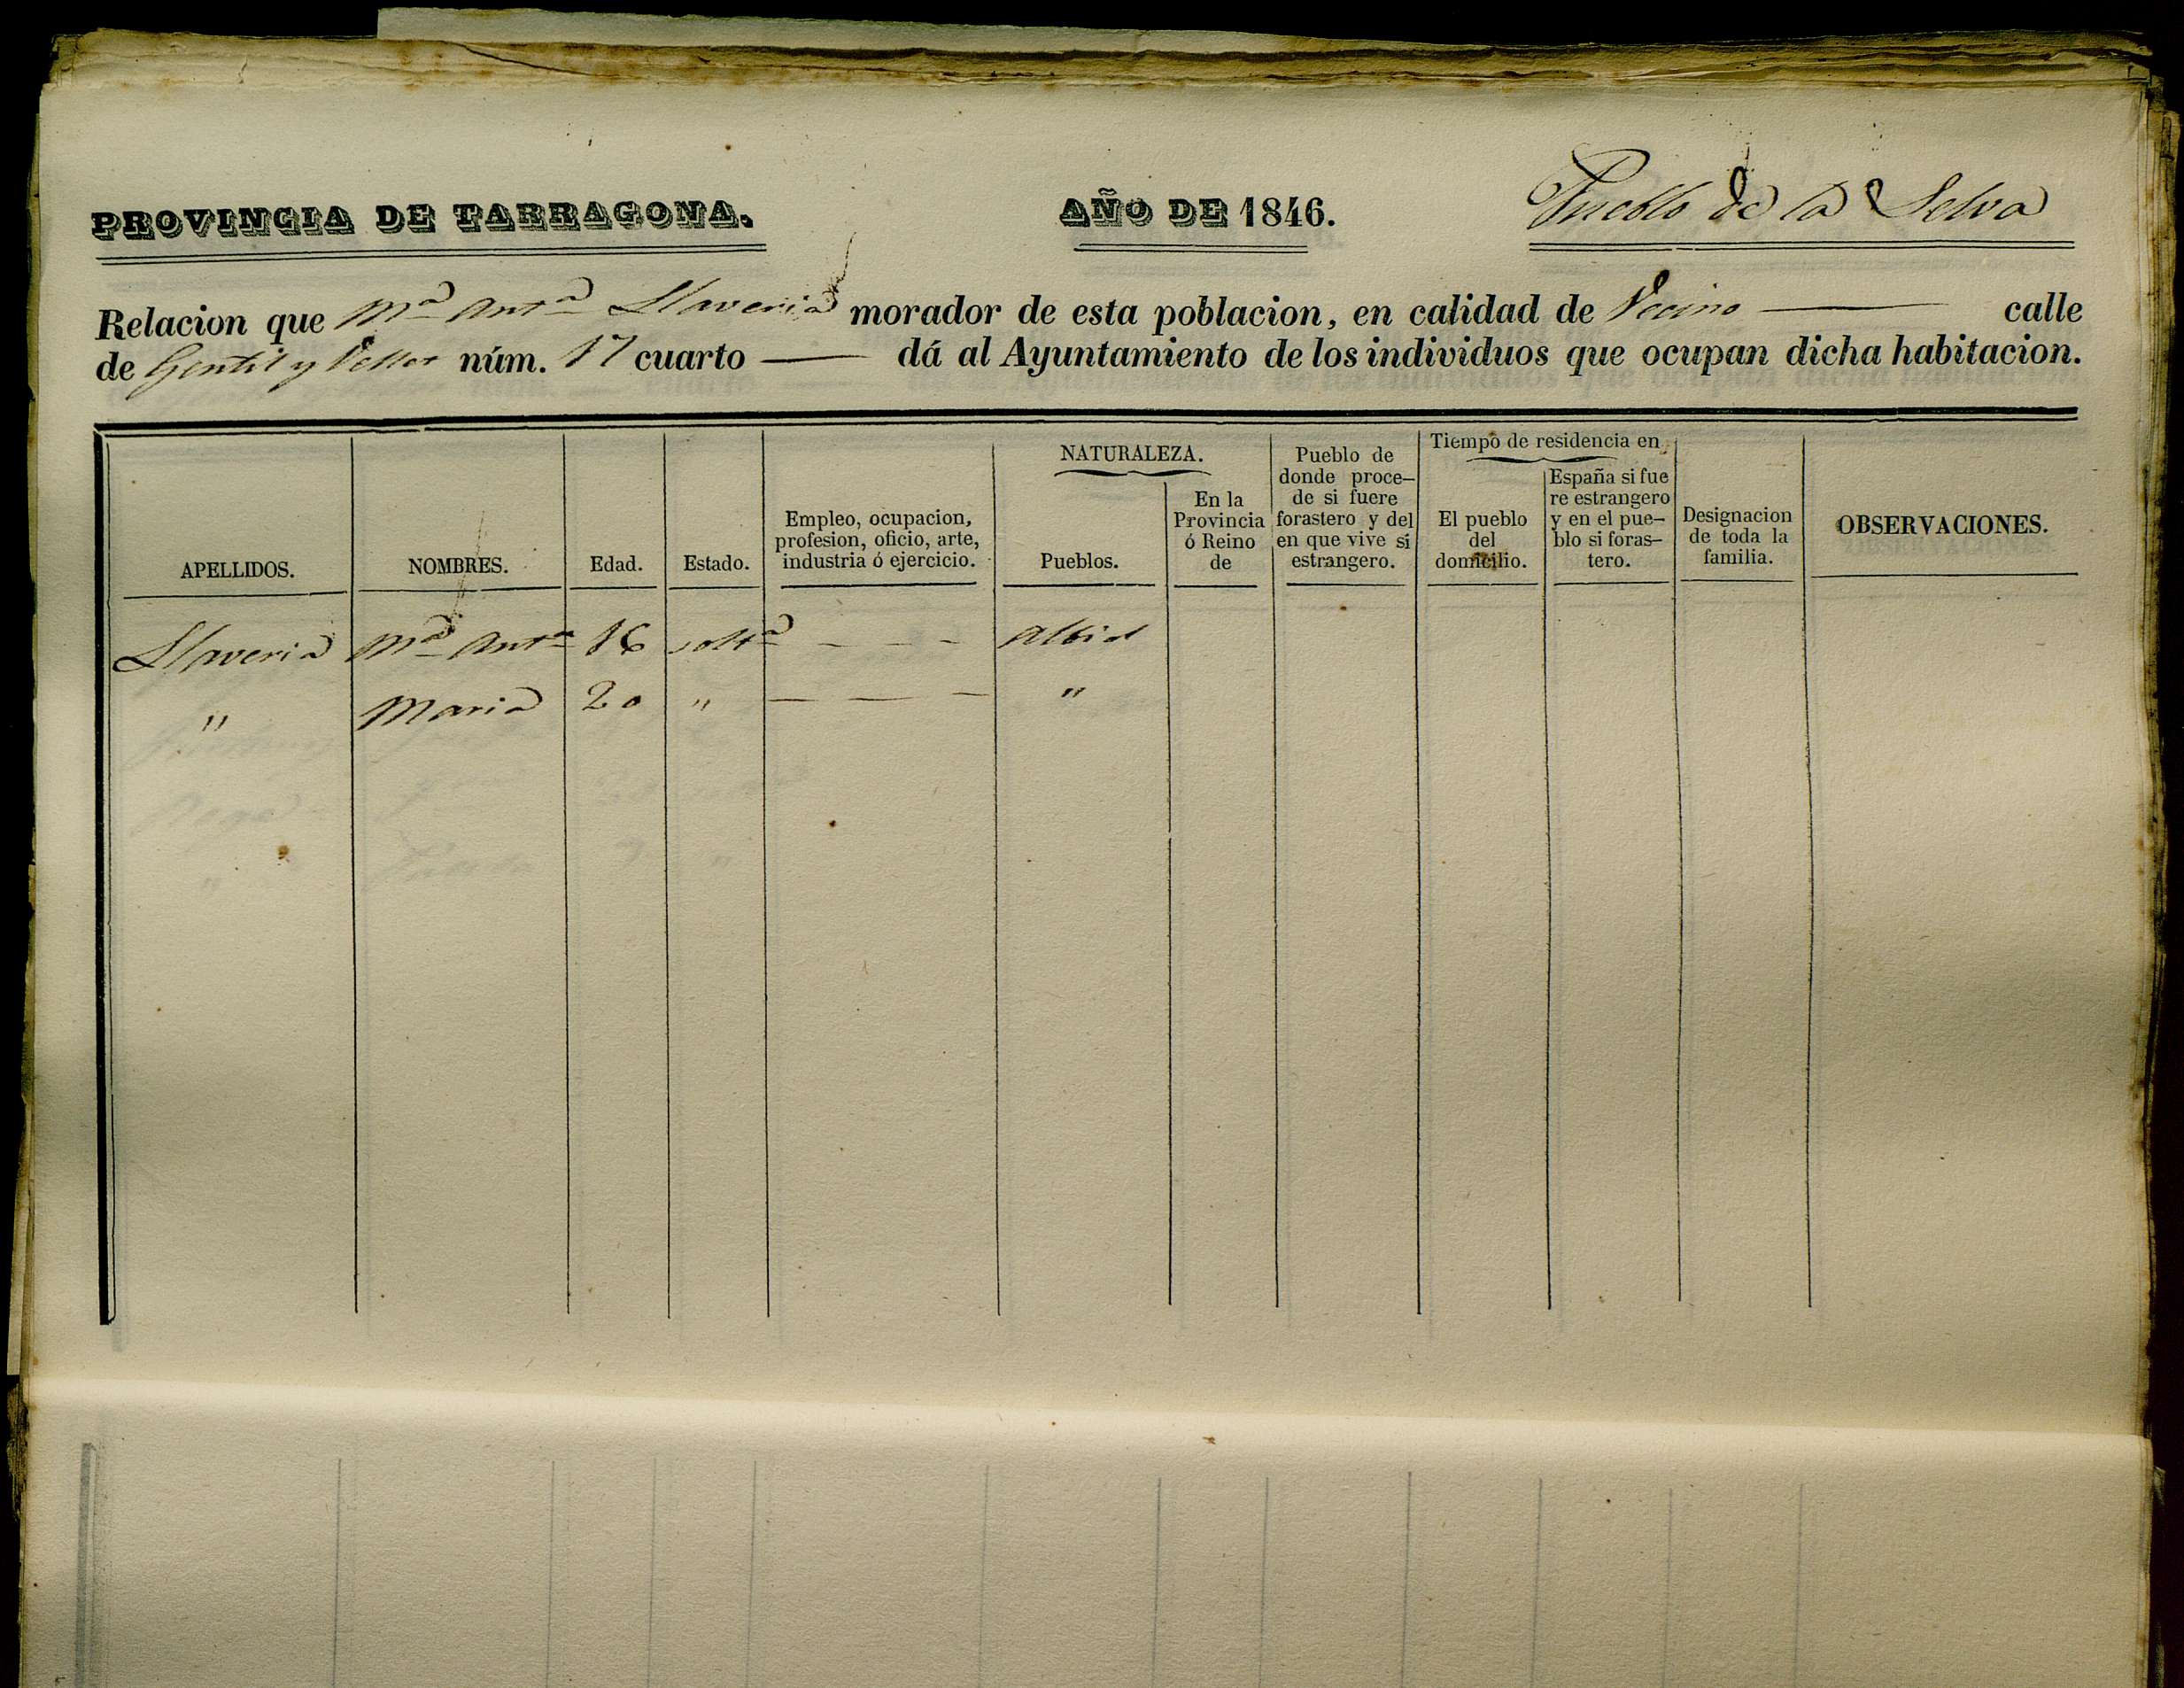 PROVINCIA DE TARRAGONA. AÑO DE 1846. Pueblo de la Selva
Relacion que Mª Antª Llaveria morador de esta poblacion, en calidad de Vecino — calle
de Gentil y núm. 17 cuarto — dá al Ayuntamiento de los individuos que ocupan dicha habitacion.
APELLIDOS.
NOMBRES.
Edad.
Estado.
Empleo, ocupacion,
profesion, oficio, arte,
industria ó ejercicio.
NATURALEZA.
Pueblos.
En la
Provincia
ó Reino
de
Pueblo de
donde proce-
de si fuere
forastero y del
en que vive si
estrangero.
Tiempo de residencia en
El pueblo
del
domicilio.
España si fue
re estrangero
y en el pue-
blo si foras-
tero.
Designacion
de toda la
familia.
OBSERVACIONES.
Llaveria Mª Antª 16 soltª — — — Albiol
" Maria 20 " — — — "